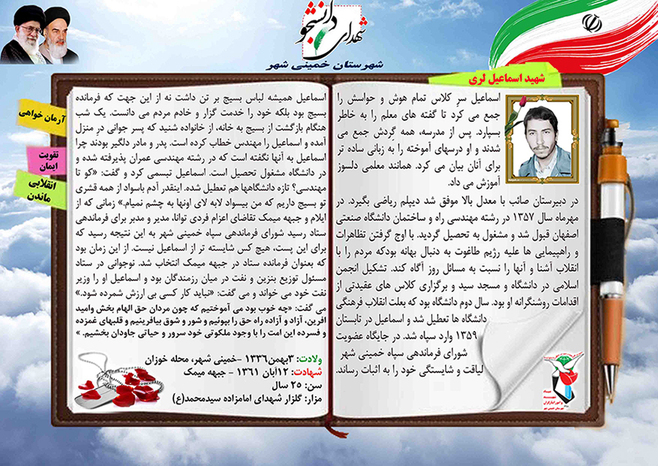 شهدای دانشجو
شهرستان خمینی شهر
شهید اسماعیل لری
اسماعیل سرِ کلاس تمام هوش و حواسش را
جمع می کرد تا گفته های معلم را به خاطر
بسپارد. پس از مدرسه، همه گردش جمع می
شدند و او درسهای آموخته را به زبانی ساده تر
برای آنان بیان می کرد. همانند معلمی دلسوز
آموزش می داد.
در دبیرستان صائب با معدل بالا موفق شد دیپلم ریاضی بگیرد. در
مهرماه سال ۱۳۵۷ در رشته مهندسی راه و ساختمان دانشگاه صنعتی
اصفهان قبول شد و مشغول به تحصیل گردید. با اوج گرفتن تظاهرات
و راهپیمایی ها علیه رژیم طاغوت به دنبال بهانه بودکه مردم را با
انقلاب آشنا و آنها را نسبت به مسائل روز آگاه کند. تشکیل انجمن
اسلامی در دانشگاه و مسجد سید و برگزاری کلاس های عقیدتی از
اقدامات روشنگرانه او بود. سال دوم دانشگاه بود که بعلت انقلاب فرهنگی
دانشگاه ها تعطیل شد و اسماعیل در تابستان
۱۳۵۹ وارد سپاه شد. در جایگاه عضویت
شورای فرماندهی سپاه خمینی شهر
لیاقت و شایستگی خود را به اثبات رساند.
آرمان خواهی
تقویت
ایمان
انقلابی
ماندن
اسماعیل همیشه لباس بسیج بر تن داشت نه از این جهت که فرمانده
بسیج بود بلکه خود را خدمت گزار و خادم مردم می دانست. یک شب
هنگام بازگشت از بسیج به خانه، از خانواده شنید که پسر جوانی در منزل
آمده و اسماعیل را مهندس خطاب کرده است. پدر و مادر دلگیر بودند چرا
اسماعیل به آنها نگفته است که در رشته مهندسی عمران پذیرفته شده و
در دانشگاه مشغول تحصیل است. اسماعیل تبسمی کرد و گفت: «کو تا
مهندسی؟ تازه دانشگاهها هم تعطیل شده. اینقدر آدم باسواد از همه قشری
تو بسیج داریم که من بیسواد لابه لای اونها به چشم نمیام.» زمانی که از
ایلام و جبهه میمک تقاضای اعزام فردی توانا، مدیر و مدبر برای فرماندهی
ستاد رسید شورای فرماندهی سپاه خمینی شهر به این نتیجه رسید که
برای این پست، هیچ کس شایسته تر از اسماعیل نیست. از این زمان بود
که بعنوان فرمانده ستاد در جبهه میمک انتخاب شد. نوجوانی در ستاد
مسئول توزیع بنزین و نفت در میان رزمندگان بود و اسماعیل او را وزیر
نفت خود می خواند و می گفت: «نباید کار کسی بی ارزش شمرده شود.»
می گفت: «چه خوب بود می آموختیم که چون مردان حق الهام بخش وامید
آفرین، آزاد و آزاده راه حق را بپوئیم و شور و شوق بیافرینیم و قلبهای غمزده
و فسرده این امت را با وجود ملکوتی خود سرور و حیاتی جاودان بخشیم. »
ولادت: ۳بهمن۱۳۳۶ -خمینی شهر، محله خوزان
شهادت: ۱۲آبان ۱۳۶۱ - جبهه میمک
سن: ۲۵ سال
مزار: گلزار شهدای امامزاده سیدمحمد(ع)